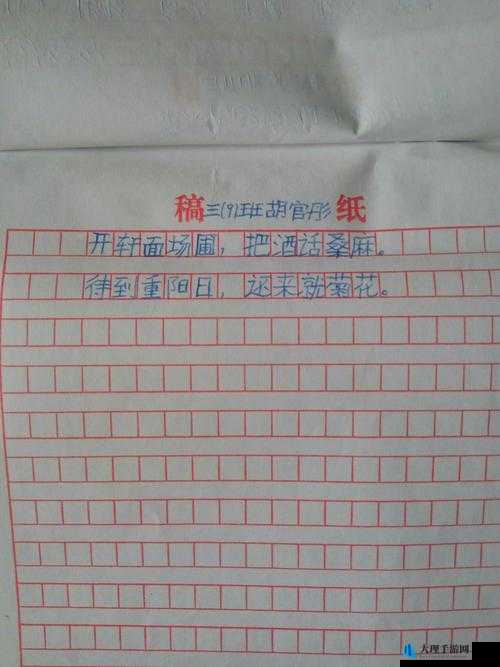 稿三(9)班胡官彤纸
开轩面场圃，把酒话桑麻。
待到重阳日，还来就菊花。
大理手游网